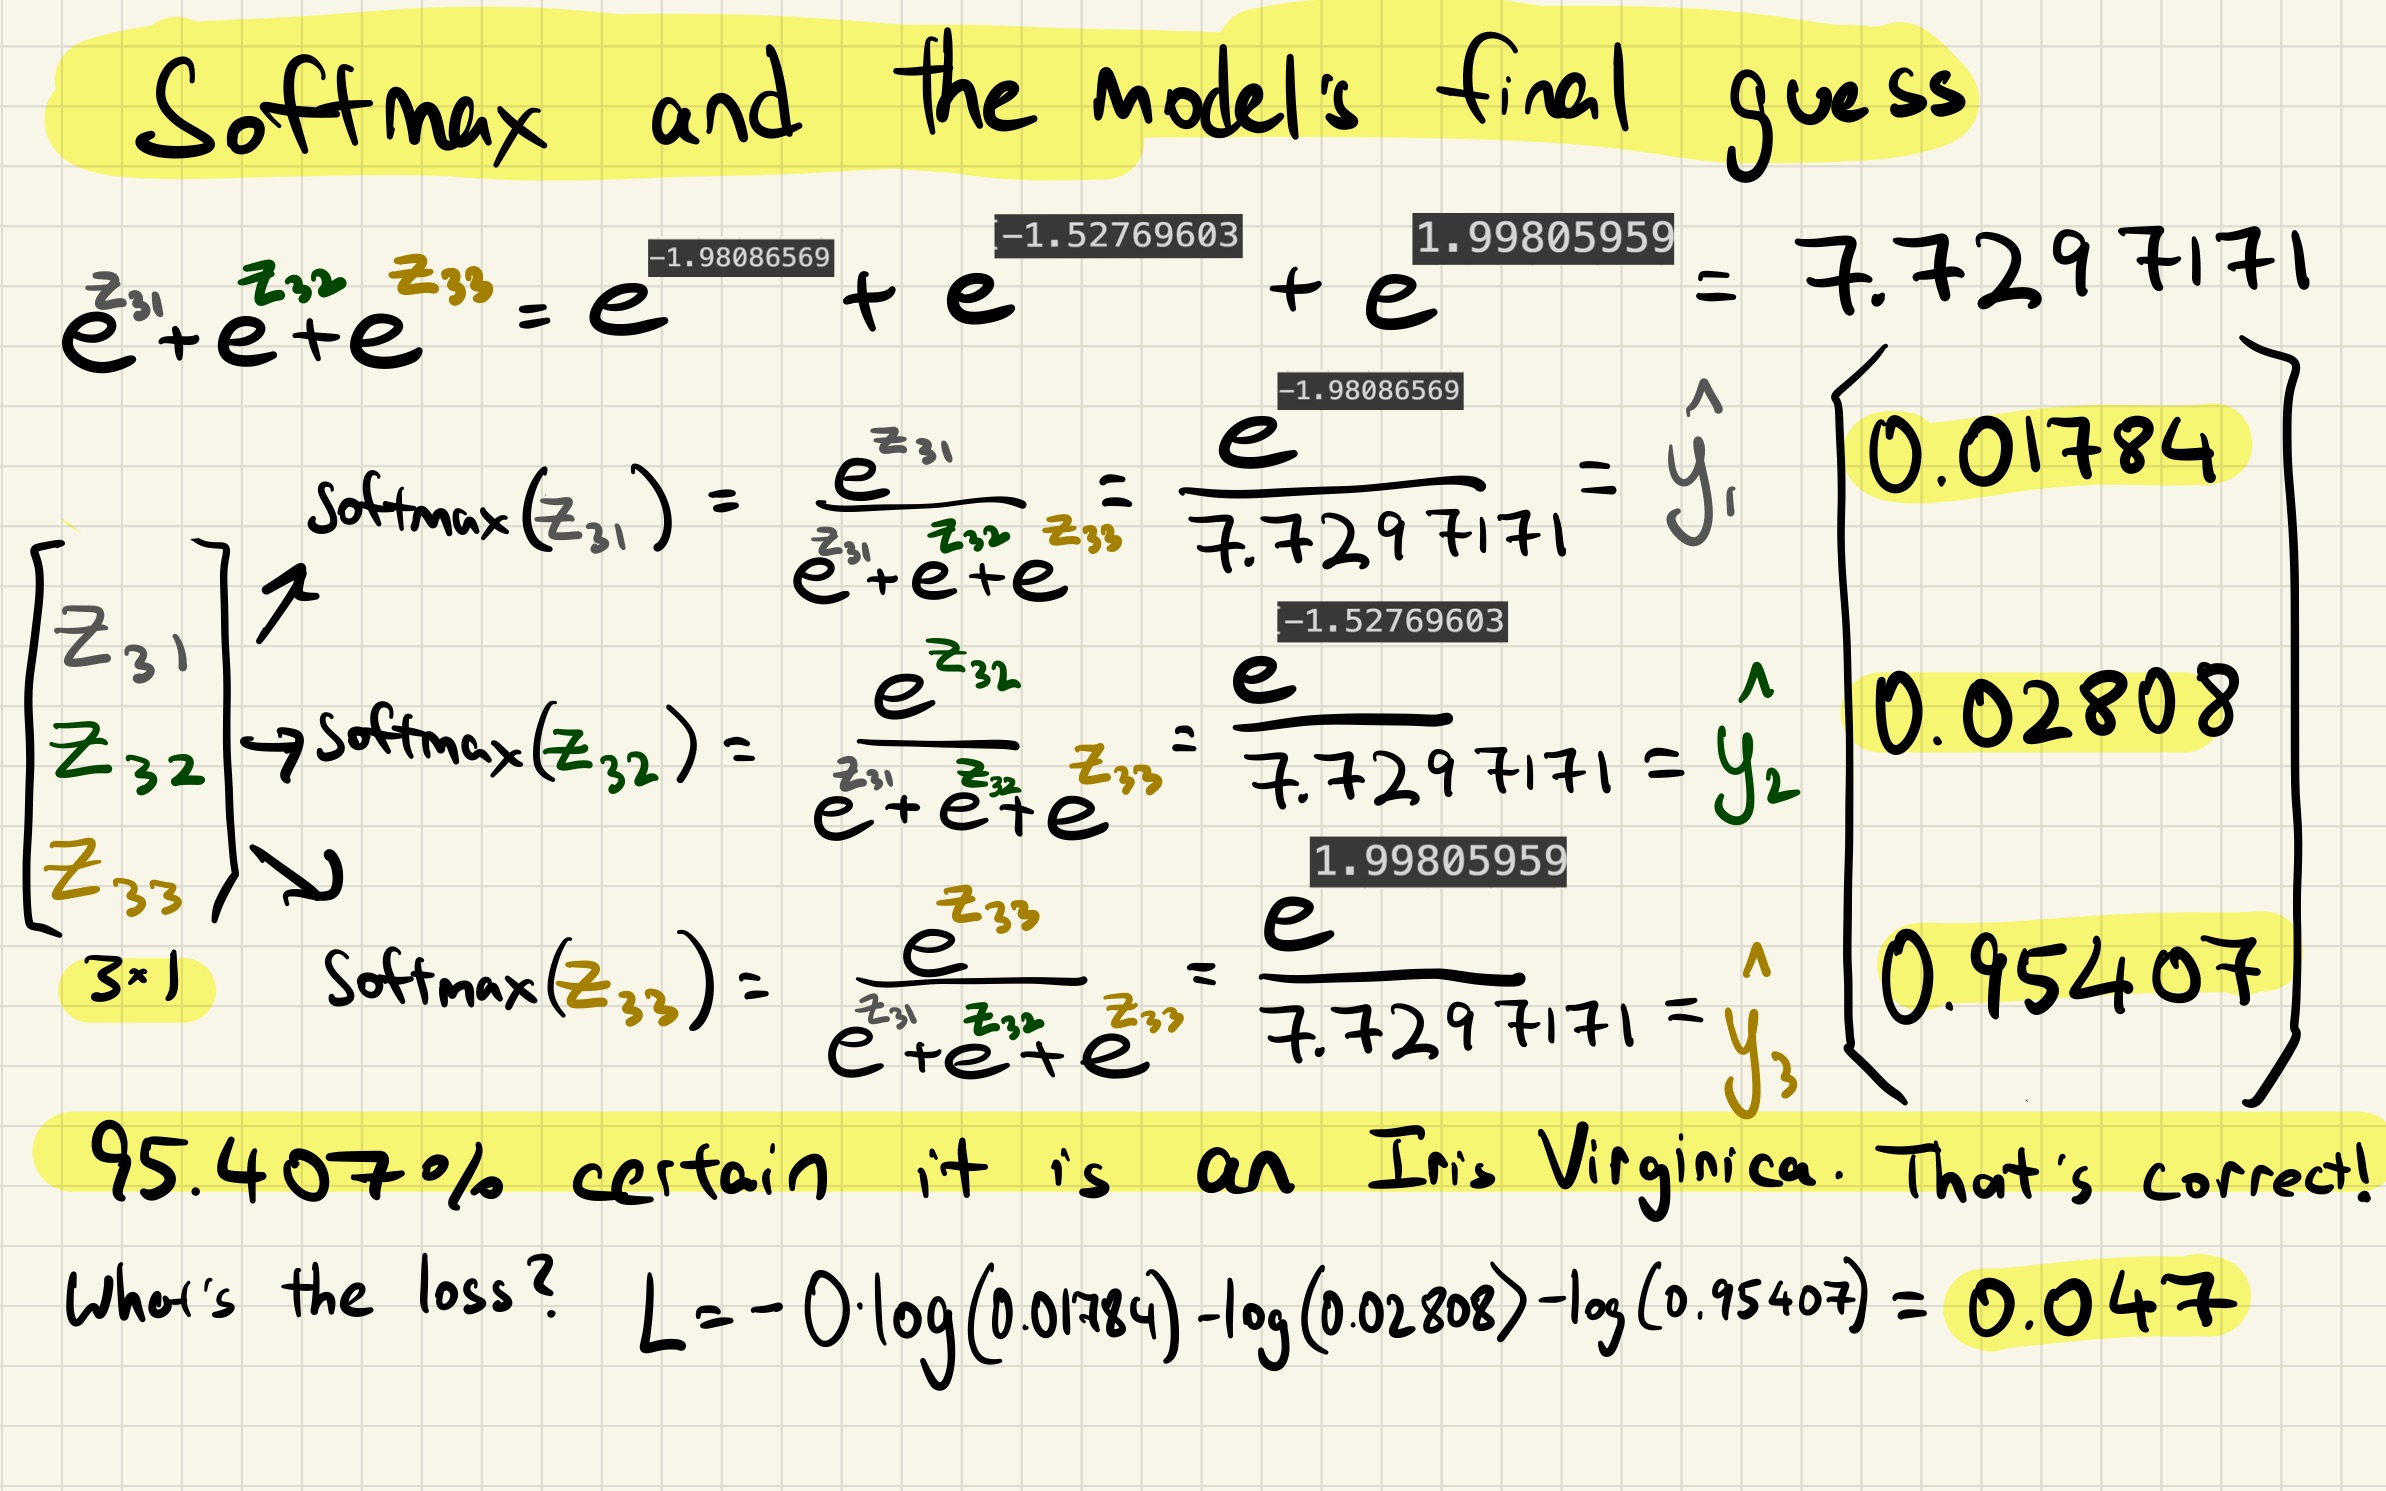 Softmax and the model's final guess
e^z31 + e^z32 + e^z33 = e^−1.98086569 + e^−1.52769603 + e^1.99805959 = 7.7297171
softmax(z31) = e^z31 / e^z31 + e^z32 + e^z33 = e^−1.98086569 / 7.7297171 = ŷ1 0.01784
z31
z32 → softmax(z32) = e^z32 / e^z31 + e^z32 + e^z33 = e^−1.52769603 / 7.7297171 = ŷ2 0.02808
z33
3×1 Softmax(z33) = e^z33 / e^z31 + e^z32 + e^z33 = e^1.99805959 / 7.7297171 = ŷ3 0.95407
95.407% certain it is an Iris Virginica. That's correct!
What's the loss? L = - 0·log(0.01784) - log(0.02808) - log(0.95407) = 0.047